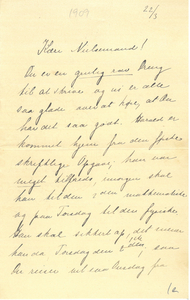 1909
22/5
Kære Nielsmand!
Du er en gu rar Dreng
til at skrive og vi er alle
saa glade over at høre, at Du
har det saa godt. Harald er
kommet hjem fra den første
skriftlige Opgave, han var
meget tilfreds, morgen skal
han til den 2den mathematiske
og paa Torsdag til den fysiske.
Han skal sikkert op, det ender
han da Torsdag den 2den, saa
De rejser vel saa Onsdag fra